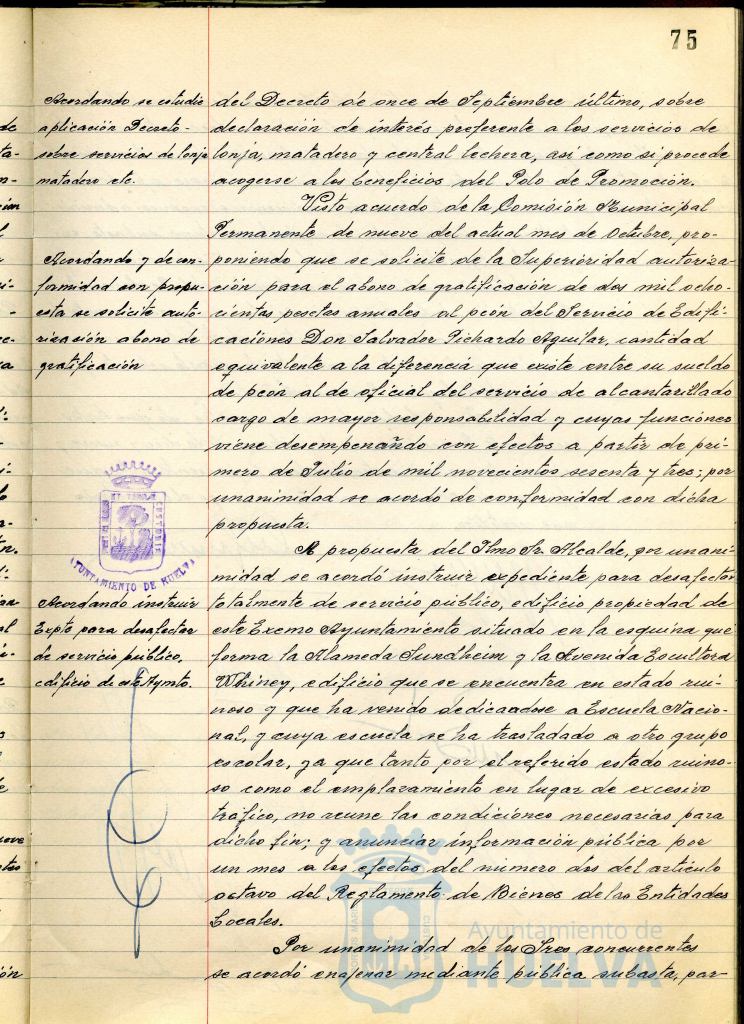 75
Acordando se estudie
aplicación Decreto-
sobre servicios de lonja
matadero etc.
del Decreto de once de Septiembre último, sobre
declaración de interés preferente a los servicios de
lonja, matadero y central lechera, así como si procede
acogerse a los beneficios del Polo de Promoción.
Visto acuerdo de la Comisión Municipal
Permanente de nueve del actual mes de Octubre, pro-
Acordando y de con-
formidad con propu-
esta se solicite auto-
rización abono de
gratificación
poniendo que se solicite de la Superioridad autoriza-
ción para el abono de gratificación de dos mil ocho-
cientas pesetas anuales al peón del Servicio de Edifi-
caciones Don Salvador Pichardo Aguilar, cantidad
equivalente a la diferencia que existe entre su sueldo
de peón al de oficial del servicio de alcantarillado
cargo de mayor responsabilidad y cuyas funciones
viene desempenañdo con efectos a partir de pri-
mero de Julio de mil novecientos sesenta y tres; por
unanimidad se acordó de conformidad con dicha
propuesta.
AYUNTAMIENTO DE HUELVA
A propuesta del Ilmo Sr. Alcalde, por unani-
midad se acordó instruir expediente para desafectar
Acordando instruir
Expte para desafectar
de servicio público,
edificio de este Aymto.
totalmente de servicio público, edificio propiedad de
este Excmo Ayuntamiento situado en la esquina que
forma la Alameda Sundheim y la Avenida Escultora
Whiney, edificio que se encuentra en estado rui-
noso y que ha venido dedicandose a Escuela Nacio-
nal, y cuya escuela se ha trasladado a otro grupo
escolar, ya que tanto por el referido estado ruino-
so como el emplazamiento en lugar de excesivo
tráfico, no reune las condiciones necesarias para
dicho fin; y anunciar información pública por
un mes a los efectos del número dos del artículo
octavo del Reglamento de Bienes de las Entidades
Locales.
Por unanimidad de los Sres concurrentes
se acordó enajenar mediante pública subasta, par-
Ayuntamiento de
HUELVA